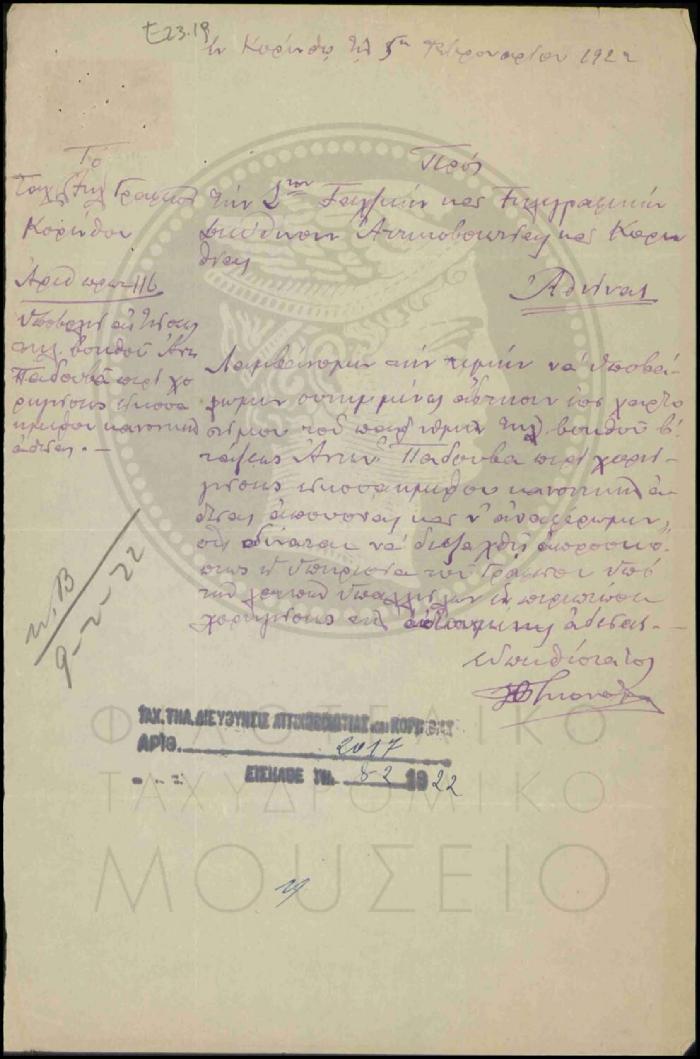 Ε23.19
ἐν Κορίνθῳ τῇ 5ῃ Φεβρουαρίου 1922
Τὸ
Ταχ. Τηλ. Γραφεῖον
Κορίνθου
Ἀριθ πρωτ 116
Ὑποβολὴ αἰτήσεως
τηλ. βοηθοῦ Ἀντ.
Παδουβᾶ περὶ χο
ρηγήσεως εἰκοσα
ημέρου κανονικῆς
ἀδείας. —
Πρὸς
τὴν καὶ Τηλεγραφικὴν
Διεύθυνσιν Ἀττικοβοιωτίας καὶ Κοριν
θίας
Ἀθήνας
Λαμβάνομεν τὴν τιμὴν νὰ ὑποβά
λωμεν συνημμένως αἴτησιν ἐπὶ χαρτο
σήμου τοῦ παρ' ἡμῖν τηλ. βοηθοῦ β'
τάξεως Ἀντ. Παδουβᾶ περὶ χορη
γήσεως εἰκοσαημέρου κανονικῆς ἀ
δείας ἀπουσίας καὶ ν' ἀναφέρωμεν
ὅτι δύναται νὰ διεξαχθῇ ἀπροσκό
πτως ἡ ὑπηρεσία τοῦ Γραφείου ὑπὸ
τῶν λοιπῶν ὑπαλλήλων ἐν περιπτώσει
χορηγήσεως τῆς ἀδείας. —
εὐπειθέστατος
9-2-22
ΤΑΧ. ΤΗΛ. ΔΙΕΥΘΥΝΣΙΣ ΑΤΤΙΚΟΒΟΙΩΤΙΑΣ και ΚΟΡΙΝΘΙΑΣ
ΑΡΙΘ. 2017
ΕΙΣΗΛΘΕ ΤΗ 8-2 1922
ΦΙΛΟΤΕΛΙΚΟ
ΤΑΧΥΔΡΟΜΙΚΟ
ΜΟΥΣΕΙΟ